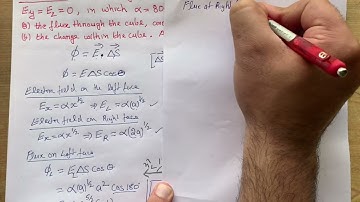 Ey = Ez = 0, in which α = 80
(a) the flux through the cube,
(b) the charge within the cube.
ϕ = E⃗ . ΔS⃗
ϕ = EΔS cosθ
Electric field on the left face
Ex = αx^1/2 ⇒ EL = α(a)^1/2 ✓
Electric field on Right face
Ex = αx^1/2 ⇒ ER = α(2a)^1/2 ✓
Flux on Left face
ϕL = ELΔS cosθ
= α(a)^1/2 a² cos180°
Flux at Right